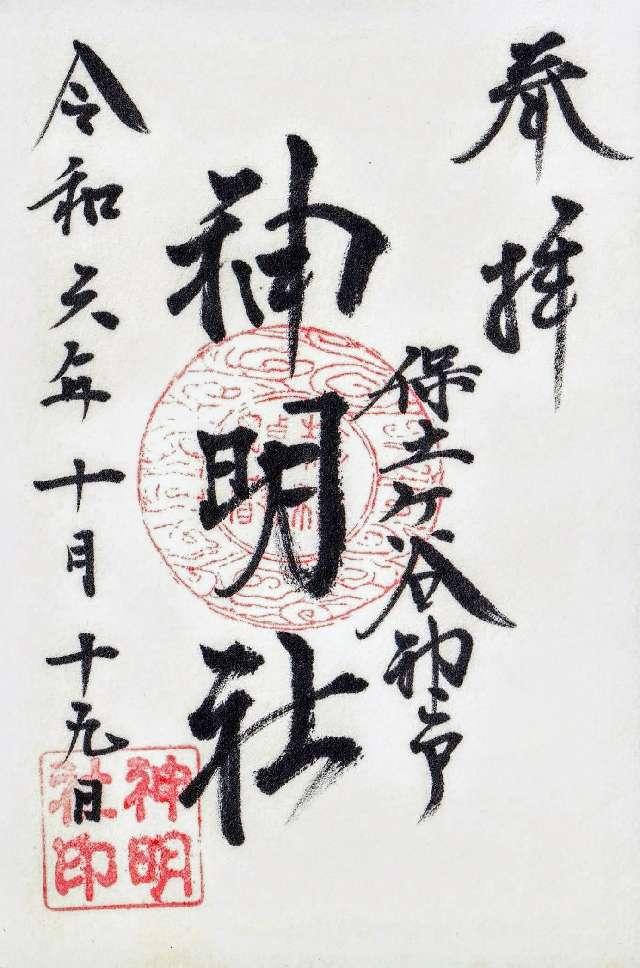 奉拝
保土ヶ谷神戸
神明社
令和六年十月十九日
神明
社印